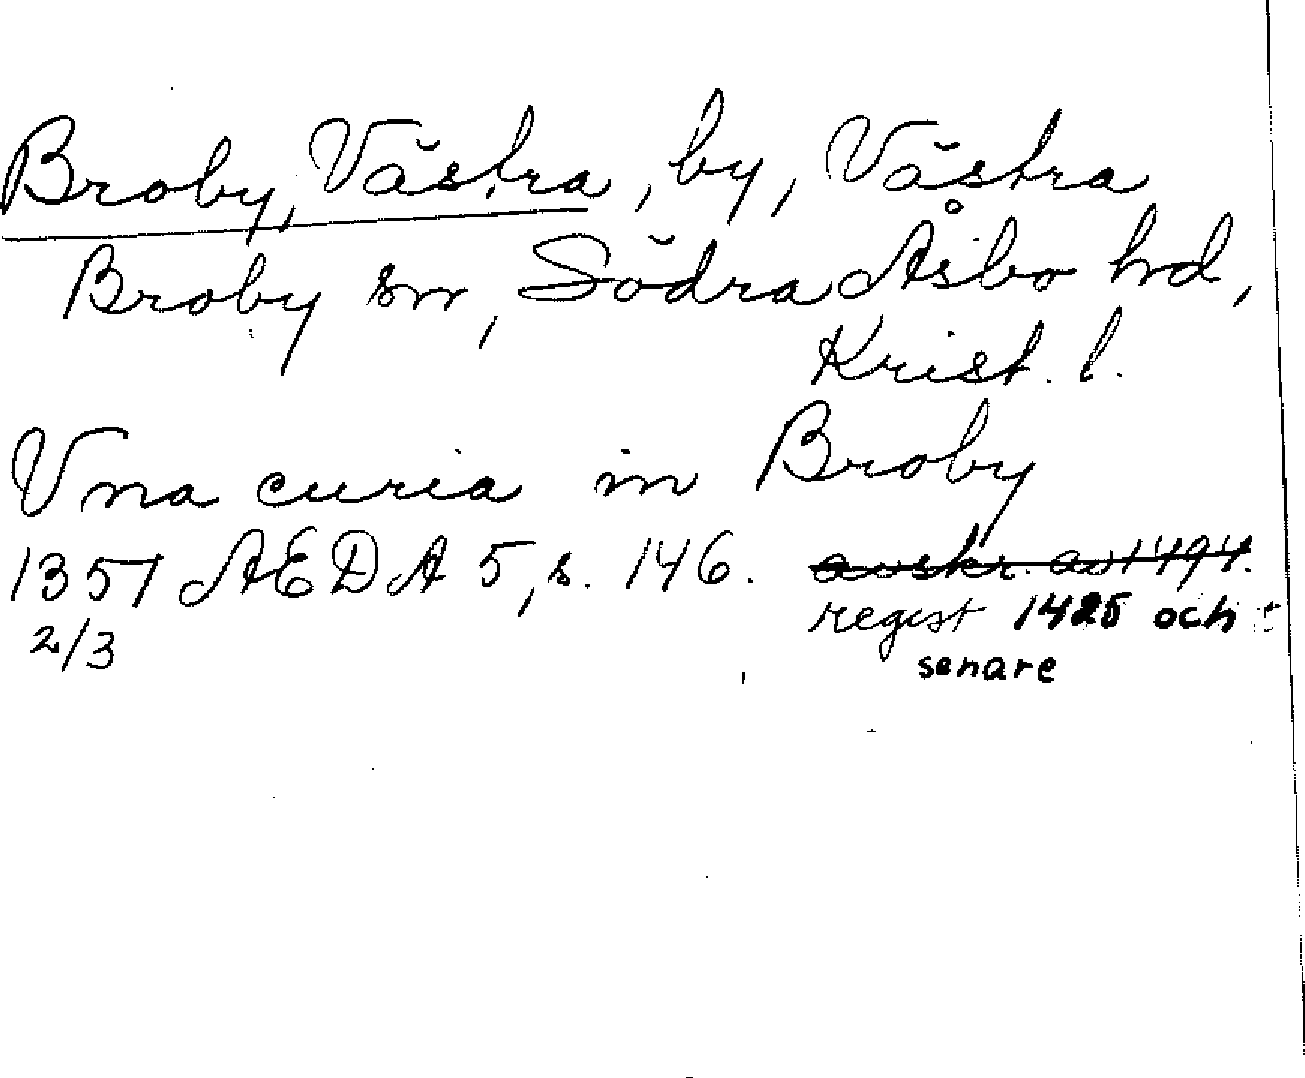 Broby, Västra, by, Västra
Broby sn, Södra Åsbo hd,
Krist. l.
Vna curia in Broby
1357 AEDA 5, s. 146. avskr. av 1494.
2/3 regist 1425 och
senare